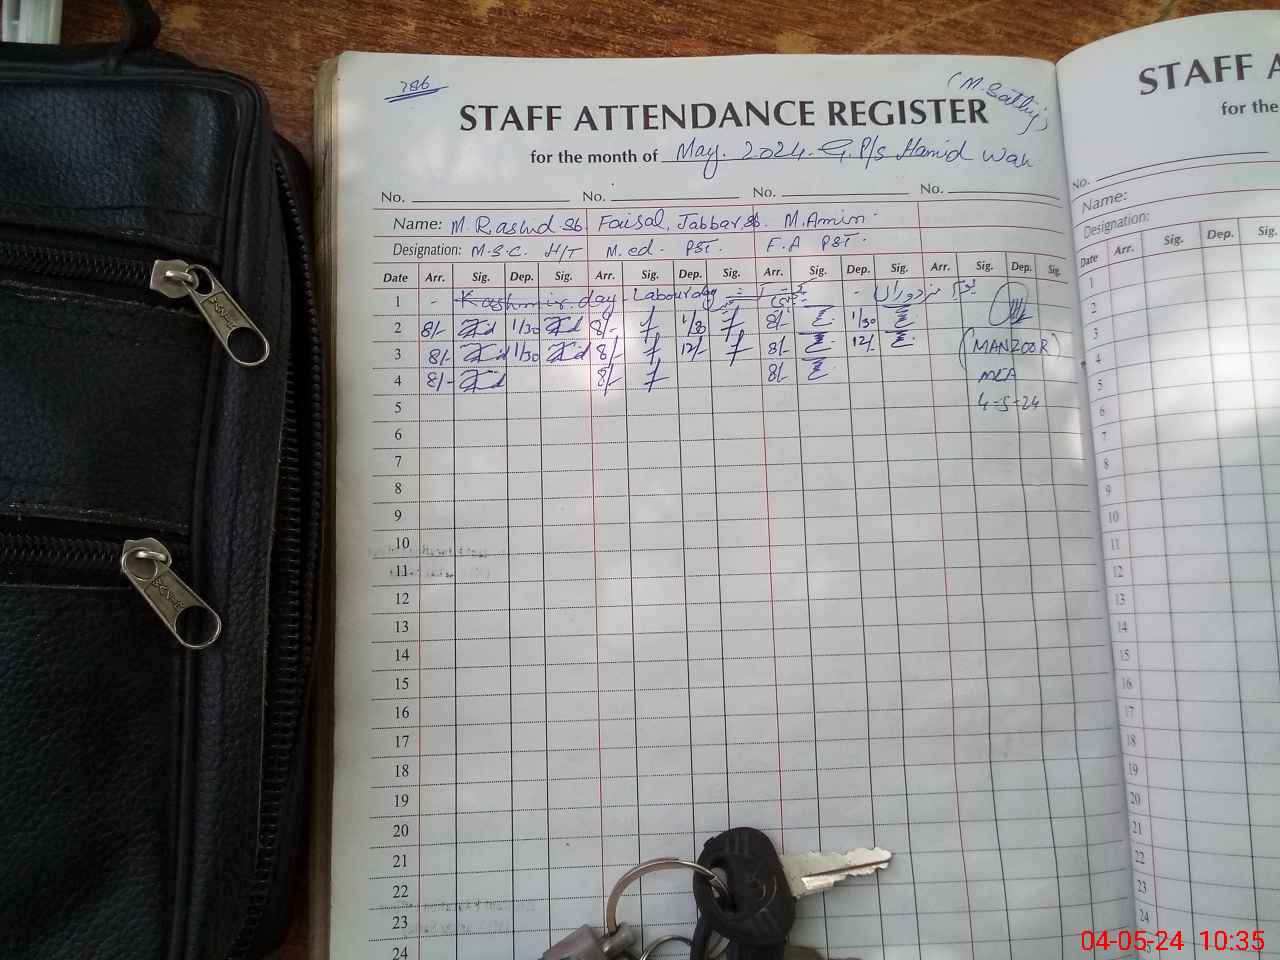 786
(M.Sathij)
STAFF ATTENDANCE REGISTER
for the month of May. 2024. G.P/s Hamid Wah
No. No. No. No.
Name: M.Rashid.sb. Faisal, Jabbar.sb. M.Amin.
Designation: M.S.C. H/T M.ed. PST. F.A PST.
Date Arr. Sig. Dep. Sig. Arr. Sig. Dep. Sig. Arr. Sig. Dep. Sig. Arr. Sig. Dep. Sig.
1 - Kashmir day - Labour day - یوم مزدوراں
2 8/- 1/30 8/- 1/30 8/- 1/30
3 8/- 1/30 8/- 12/- 8/- 12/- (MANZOOR)
4 8/- 8/- 8/- MEA
5 4-5-24
6
7
8
9
10
11
12
13
14
15
16
17
18
19
20
21
22
23
24
STAFF A
for the
No.
Name:
Designation:
Date Arr. Sig. Dep. Sig.
1
2
3
4
5
6
7
8
9
10
11
12
13
14
15
16
17
18
19
20
21
22
23
24
04-05-24 10:35